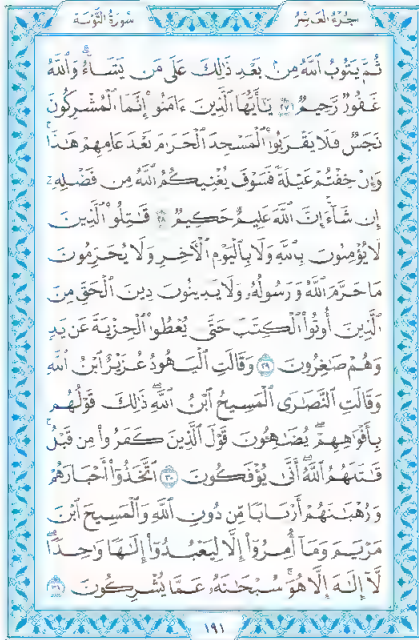 سُورَةُ التَّوْبَة
جُزْءُ العَاشِر
ثُمَّ يَتُوبُ ٱللَّهُ مِنۢ بَعْدِ ذَٰلِكَ عَلَىٰ مَن يَشَآءُ وَٱللَّهُ
غَفُورٌ رَّحِيمٌ ٢٧ يَٰٓأَيُّهَا ٱلَّذِينَ ءَامَنُوٓاْ إِنَّمَا ٱلْمُشْرِكُونَ
نَجَسٌ فَلَا يَقْرَبُواْ ٱلْمَسْجِدَ ٱلْحَرَامَ بَعْدَ عَامِهِمْ هَٰذَا
وَإِنْ خِفْتُمْ عَيْلَةً فَسَوْفَ يُغْنِيكُمُ ٱللَّهُ مِن فَضْلِهِۦٓ
إِن شَآءَ إِنَّ ٱللَّهَ عَلِيمٌ حَكِيمٌ ٢٨ قَٰتِلُواْ ٱلَّذِينَ
لَا يُؤْمِنُونَ بِٱللَّهِ وَلَا بِٱلْيَوْمِ ٱلْأَخِرِ وَلَا يُحَرِّمُونَ
مَا حَرَّمَ ٱللَّهُ وَرَسُولُهُۥ وَلَا يَدِينُونَ دِينَ ٱلْحَقِّ مِنَ
ٱلَّذِينَ أُوتُواْ ٱلْكِتَٰبَ حَتَّىٰ يُعْطُواْ ٱلْجِزْيَةَ عَن يَدٍ
وَهُمْ صَٰغِرُونَ ٢٩ وَقَالَتِ ٱلْيَهُودُ عُزَيْرٌ ٱبْنُ ٱللَّهِ
وَقَالَتِ ٱلنَّصَٰرَى ٱلْمَسِيحُ ٱبْنُ ٱللَّهِ ذَٰلِكَ قَوْلُهُم
بِأَفْوَٰهِهِمْ يُضَٰهِـُٔونَ قَوْلَ ٱلَّذِينَ كَفَرُواْ مِن قَبْلُ
قَٰتَلَهُمُ ٱللَّهُ أَنَّىٰ يُؤْفَكُونَ ٣٠ ٱتَّخَذُوٓاْ أَحْبَارَهُمْ
وَرُهْبَٰنَهُمْ أَرْبَابًا مِّن دُونِ ٱللَّهِ وَٱلْمَسِيحَ ٱبْنَ
مَرْيَمَ وَمَآ أُمِرُوٓاْ إِلَّا لِيَعْبُدُوٓاْ إِلَٰهًا وَٰحِدًا
لَّآ إِلَٰهَ إِلَّا هُوَ سُبْحَٰنَهُۥ عَمَّا يُشْرِكُونَ ٣١
١٩١